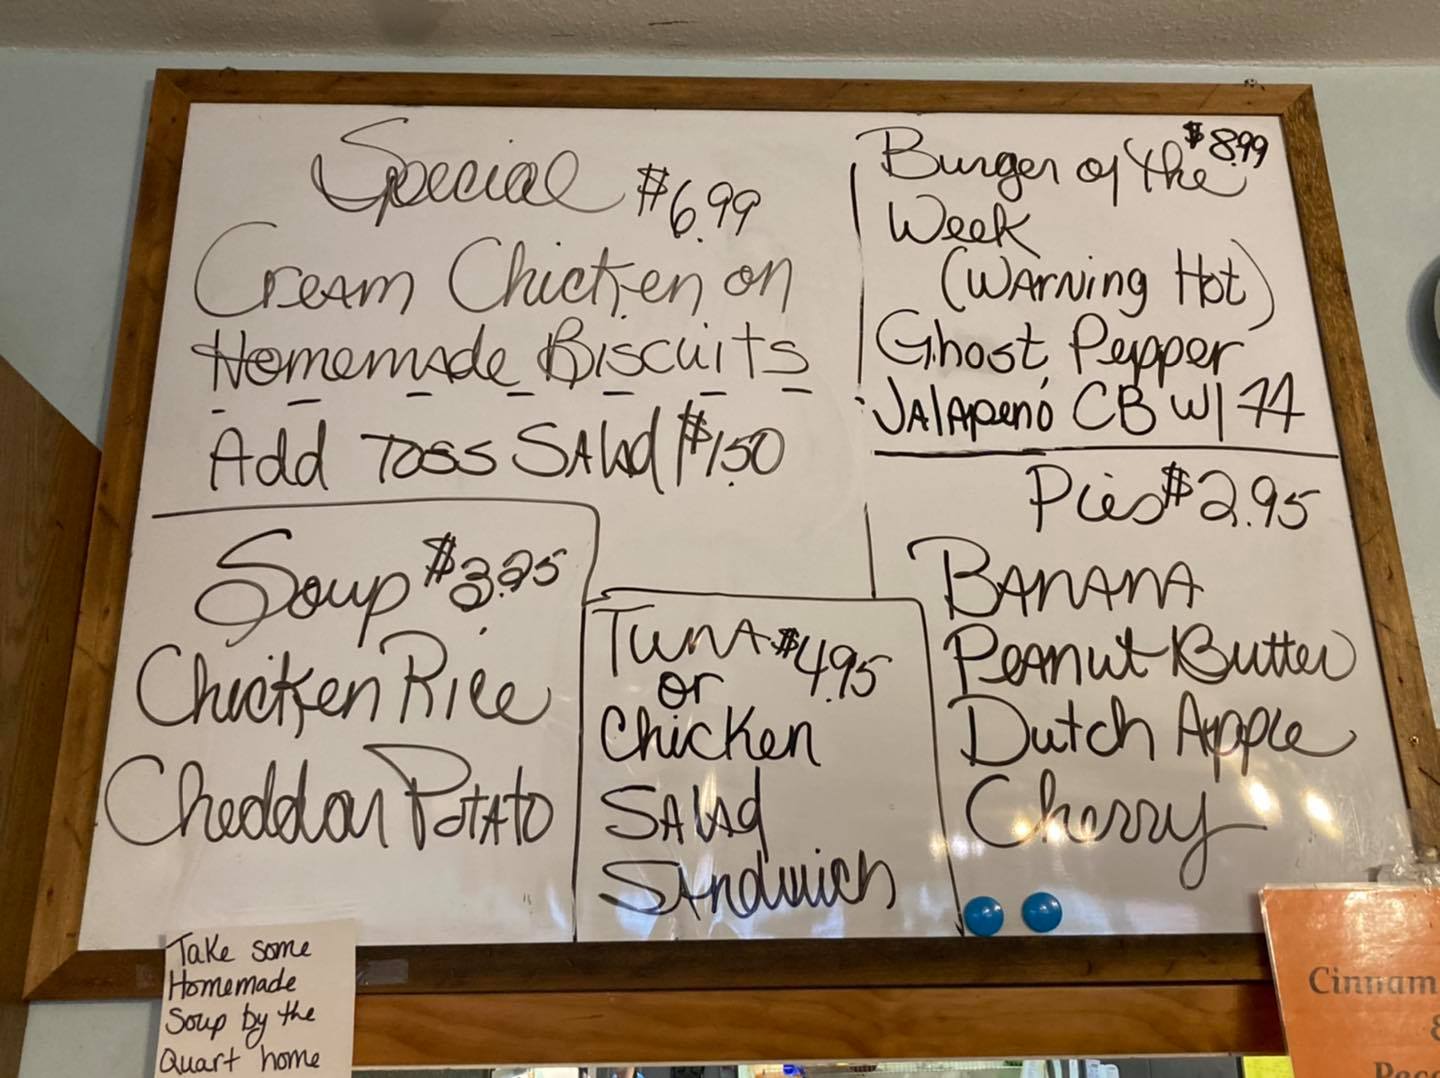 Special $6.99
Cream Chicken on
Homemade Biscuits
Add Toss Salad $1.50
Burger of the $8.99
Week
(Warning Hot)
Ghost Pepper
Jalapeno CB w/ FF
Soup $3.25
Chicken Rice
Cheddar Potato
Tuna $4.95
or
Chicken
Salad
Sandwich
Pies $2.95
Banana
Peanut Butter
Dutch Apple
Cherry
Take some
Homemade
Soup by the
Quart home
Cinnam
&